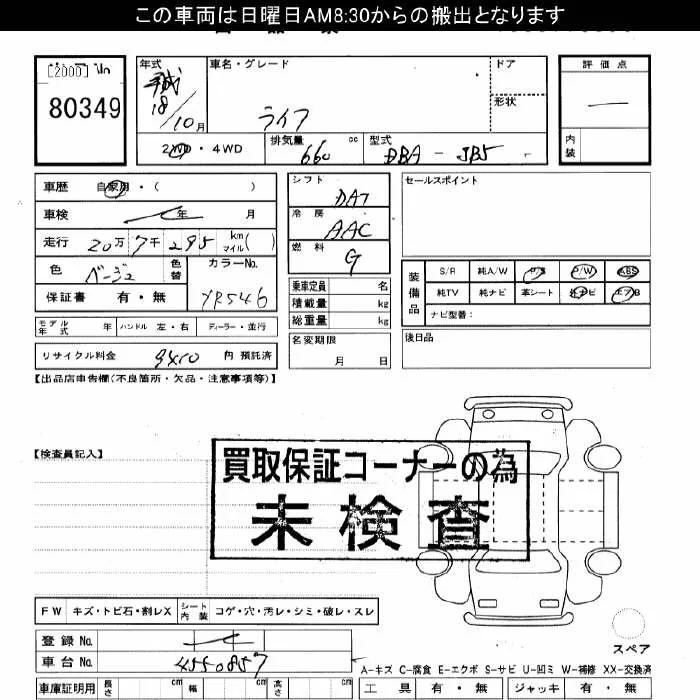 この車両は日曜日AM8:30からの搬出となります
[2000]
80349
年式
平成
18/10月
車名・グレード
ライフ
ドア
形状
評価点
内装
2WD・4WD
排気量 660 cc
型式 DBA - JB5
車歴 自家用・( )
車検 年 月
走行 20万7千295 km マイル( )
色 ベージュ 色替 カラーNo. YR546
保証書 有・無
モデル年式 年 ハンドル 左・右 ディーラー・並行
リサイクル料金 9410 円 預託済
シフト DAT
冷房 AAC
燃料 G
乗車定員 名
積載量 kg
総重量 kg
名変期限 月 日
セールスポイント
装備品
S/R 純A/W P/S P/W ABS
純TV 純ナビ 革シート 社ナビ エアB
ナビ型番:
後日品
【出品店申告欄(不良箇所・欠品・注意事項等)】
【検査員記入】
買取保証コーナーの為
未検査
FW キズ・トビ石・割レX シート内装 コゲ・穴・汚レ・シミ・破レ・スレ
登録No.
車台No. 4550857
スペア
A-キズ C-腐食 E-エクボ S-サビ U-凹ミ W-補修 XX-交換済
車庫証明用 長さ cm 幅 cm 高さ cm
工具 有・無 ジャッキ 有・無